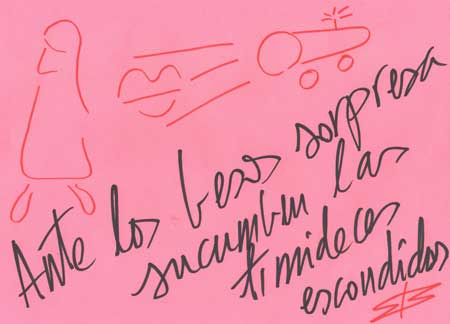 Ante los besos sorpresa
sucumben las
timideces
escondidas